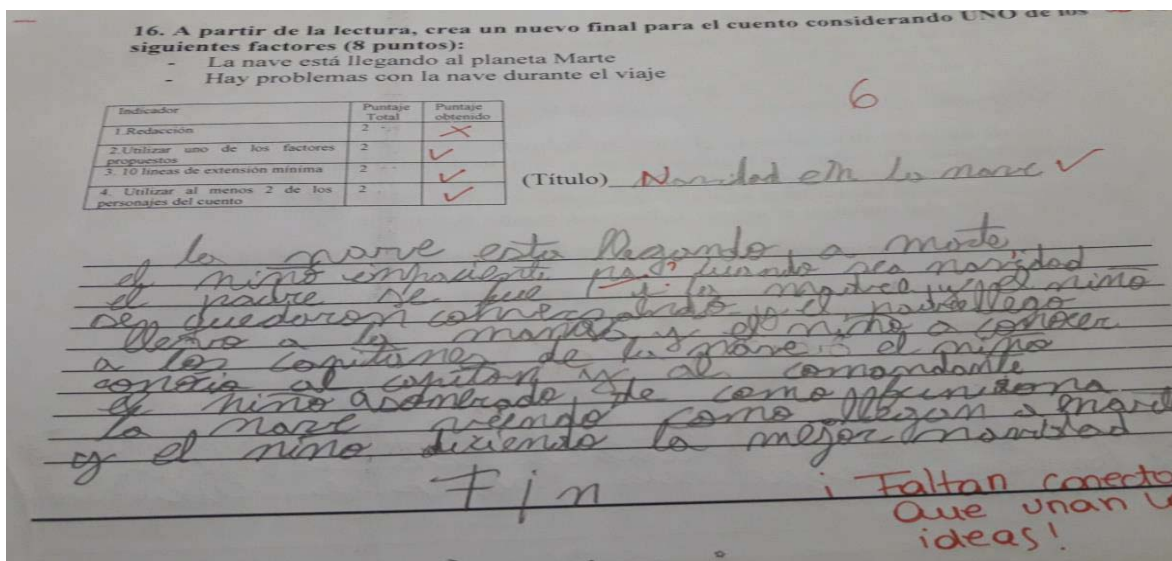 16. A partir de la lectura, crea un nuevo final para el cuento considerando UNO de los
siguientes factores (8 puntos):
- La nave está llegando al planeta Marte
- Hay problemas con la nave durante el viaje
6
Indicador Puntaje Total Puntaje obtenido
1.Redacción 2
2.Utilizar uno de los factores propuestos 2
3. 10 líneas de extensión mínima 2
4. Utilizar al menos 2 de los personajes del cuento 2
(Título) Navidad en la nave
la nave esta llegando a
el niño cuando sea navidad
el padre se fue y la madre y el niño
se quedaron conversando y el padre llego
llevo a la mamá y el niño a conocer
a los capitanes de la nave el niño
conocio al capitan y al comandante
el niño de como funciona
la nave viendo como llegan a
y el niño diciendo la mejor navidad
Fin
¡Faltan
Que unan
ideas!